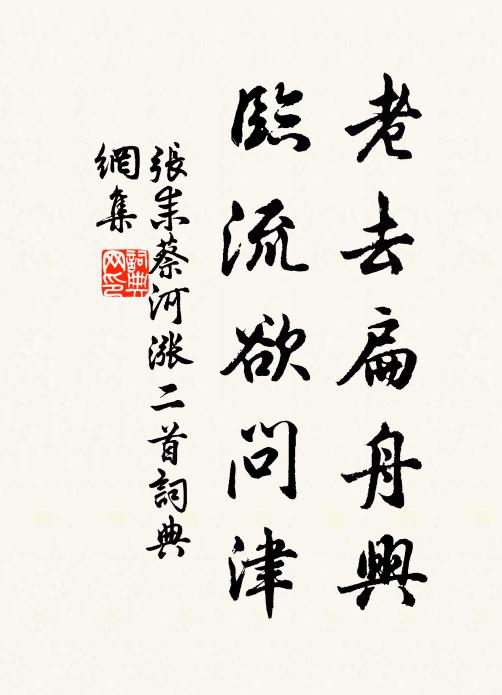 老去扁舟興
臨流欲問津
張耒蔡河漲二首詞典
網集
詞典
网印